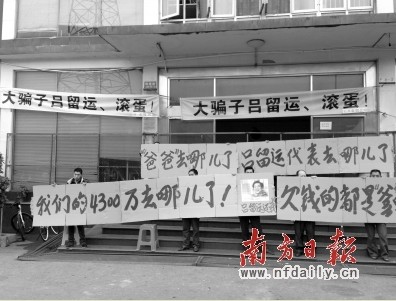 大骗子吕留运、滚蛋！
大骗子吕留运、滚蛋！
"爸爸"去哪儿了 吕留运代表去哪儿了
我们的4300万去哪儿了！
欠钱的都是"爹
南方日报
www.nfdaily.cn